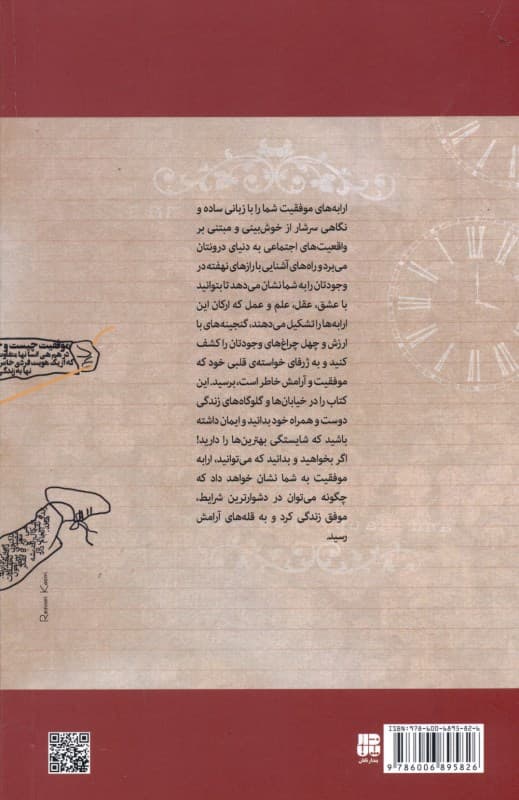 ارابه‌های موفقیت شما را با زبانی ساده و
نگاهی سرشار از خوش‌بینی و مبتنی بر
واقعیت‌های اجتماعی به دنیای درونتان
می‌برد و راه‌های آشنایی با رازهای نهفته در
وجودتان را به شما نشان می‌دهد تا بتوانید
با عشق، عقل، علم و عمل که ارکان این
ارابه‌ها را تشکیل می‌دهند، گنجینه‌های با
ارزش و چهل چراغ‌های وجودتان را کشف
کنید و به ژرفای خواسته‌ی قلبی خود که
موفقیت و آرامش خاطر است، برسید. این
کتاب را در خیابان‌ها و گلوگاه‌های زندگی
دوست و همراه خود بدانید و ایمان داشته
باشید که شایستگی بهترین‌ها را دارید!
اگر بخواهید و بدانید که می‌توانید، ارابه
موفقیت به شما نشان خواهد داد که
چگونه می‌توان در دشوارترین شرایط،
موفق زندگی کرد و به قله‌های آرامش
رسید.
موفقیت چیست و
که از یک هویت فردی خاص
ISBN: 978-600-6895-82-6
9 786006 895826